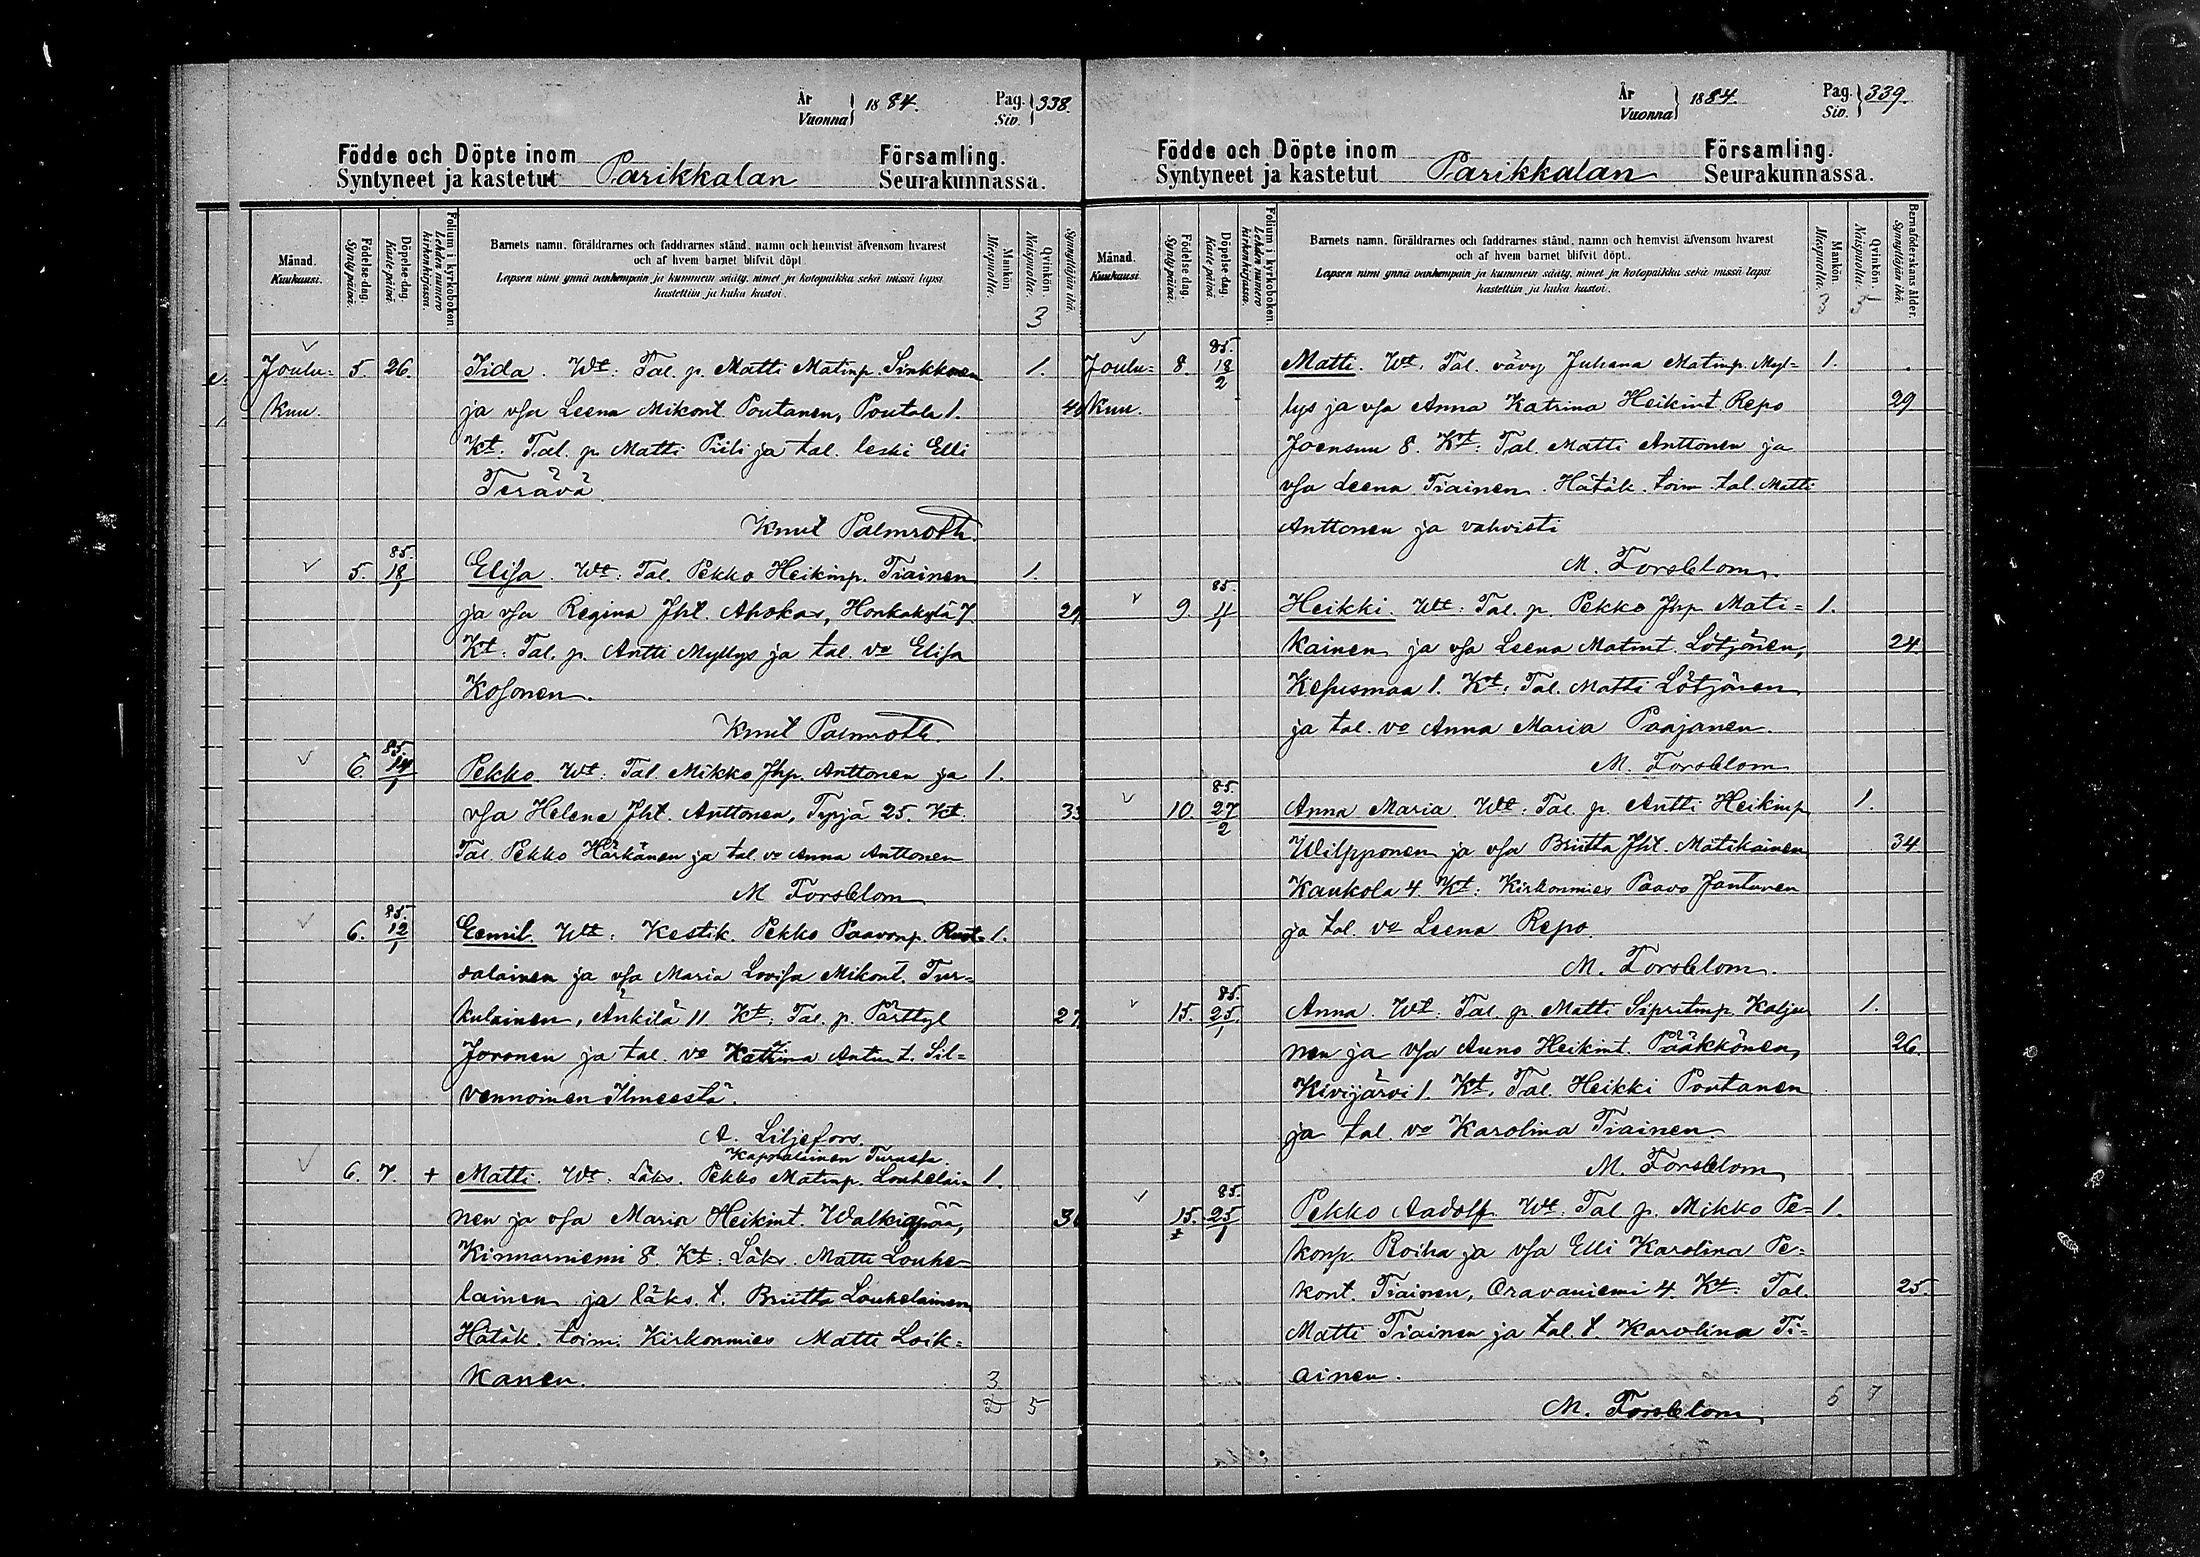 År
Vuonna } 1884. Pag. Siv. } 338.
Födde och Döpte inom Församling.
Syntyneet ja kastetut Parikkalan Seurakunnassa.
Månad. Kuukausi.
Födelse-dag. Synty päivä.
Döpelse-dag. Kaste päivä.
Folium i kyrkoboken. Lehden numero kirkonkirjassa.
Barnets namn, föräldrarnes och faddrarnes stånd, namn och hemvist äfvensom hvarest
och af hvem barnet blifvit döpt.
Lapsen nimi ynnä vanhempain ja kummein sääty, nimet ja kotopaikka sekä missä lapsi
kastettiin ja kuka kastoi.
Mankön. Miespuolia.
Qvinkön. Naispuolia.
Synnyttäjän ikä.
3
Joulu= 5. 26. Iida. Wt: Tal. p. Matti Matinp. Sinkkonen 1.
kuu. ja vsa Leena Mikont. Poutanen, Poutala 1. 40
Kt: Tal. p. Matti Piili ja tal. leski Elli
Terävä
Knut Palmroth.
5. 85. 18/1 Elisa. Wt: Tal. Pekko Heikinp. Tiainen 1.
ja vsa Regina Jht. Ahokas, Honkakylä 7 29
Kt: Tal. p. Antti Myllys ja tal. vo Elisa
Kosonen.
Knut Palmroth.
6. 85. 14/1 Pekko. Wt: Tal. Mikko Jhp. Anttonen ja 1.
vsa Helena Jht. Anttonen, Tyrjä 25. Kt. 33
Tal. Pekko Härkänen ja tal. vo Anna Anttonen
M Forsblom
6. 85. 12/1 Eemil. Wt: Kestik. Pekko Paavonp. Ruot= 1.
salainen ja vsa Maria Lovisa Mikont. Tur=
kulainen, Änkilä 11. Kt: Tal. p. Pärttyl 27
Joronen ja tal. vo Katrina Antint. Sil=
vennoinen Ilmeestä.
A. Liljefors.
Kappalainen
6. 7. + Matti. Wt: Läks. Pekko Matinp. Louhelai= 1.
nen ja vsa Maria Heikint. Walkiapää, 36
Kinnarniemi 8. Kt: Läks. Matti Louhe=
lainen ja läks. t. Briitta Louhelainen
Hätäk. toim. Kirkonmies Matti Loik=
kanen. 3
2 5
År
Vuonna } 1884. Pag. Siv. } 339.
Födde och Döpte inom Församling.
Syntyneet ja kastetut Parikkalan Seurakunnassa.
Månad. Kuukausi.
Födelse-dag. Synty päivä.
Döpelse-dag. Kaste päivä.
Folium i kyrkoboken. Lehden numero kirkonkirjassa.
Barnets namn, föräldrarnes och faddrarnes stånd, namn och hemvist äfvensom hvarest
och af hvem barnet blifvit döpt.
Lapsen nimi ynnä vanhempain ja kummein sääty, nimet ja kotopaikka sekä missä lapsi
kastettiin ja kuka kastoi.
Mankön. Miespuolia. 3
Qvinkön. Naispuolia. 5
Barnaföderskans ålder. Synnyttäjän ikä.
Joulu= 8. 85. 18/2 Matti. Wt: Tal. vävy Juhana Matinp. Myl= 1.
kuu. lys ja vsa Anna Katrina Heikint. Repo 29
Joensuu 8. Kt: Tal. Matti Anttonen ja
vsa Leena Tiainen. Hätäk. toim. tal. Matti
Anttonen ja vahvisti
M. Forsblom.
9. 85. 11/1 Heikki. Wt: Tal. p. Pekko Jhp. Mati= 1.
kainen ja vsa Leena Matint. Lötjönen, 24.
Kesusmaa 1. Kt: Tal. Matti Lötjönen
ja tal. vo Anna Maria Paajanen.
M. Forsblom
10. 85. 27/2 Anna Maria. Wt: Tal. p. Antti Heikinp. 1.
Wilpponen ja vsa Briitta Jht. Matikainen 34
Kaukola 4. Kt: Kirkonmies Paavo Jantunen
ja tal. vo Leena Repo.
M. Forsblom.
15. 85. 25/1 Anna. Wt: Tal. p. Matti Sipritinp. Kalju 1.
nen ja vsa Auno Heikint. Pääkkönen, 26.
Kivijärvi 1. Kt. Tal. Heikki Poutanen
ja tal. vo Karolina Tiainen.
M. Forsblom
15. 85. 25/1 Pekko Aadolf. Wt: Tal. p. Mikko Pe= 1.
konp. Roiha ja vsa Elli Karolina Pe=
kont. Tiainen, Oravaniemi 4. Kt: Tal. 25.
Matti Tiainen ja tal. t. Karolina Ti=
ainen.
M. Forsblom. 6 7